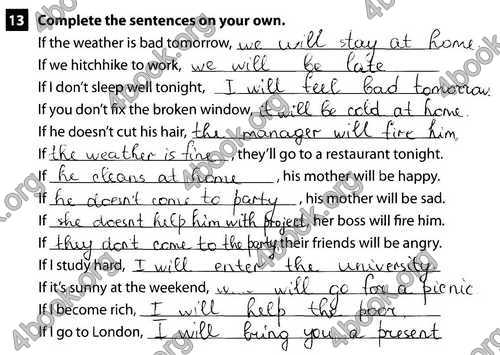 13 Complete the sentences on your own.
If the weather is bad tomorrow, we will stay at home
If we hitchhike to work, we will be late
If I don't sleep well tonight, I will feel bad tomorrow.
If you don't fix the broken window, it will be cold at home.
If he doesn't cut his hair, the manager will fire him.
If the weather is fine, they'll go to a restaurant tonight.
If he cleans at home, his mother will be happy.
If he doesn't come to party, his mother will be sad.
If she doesnt help him with project, her boss will fire him.
If they don't come to the party their friends will be angry.
If I study hard, I will enter the university
If it's sunny at the weekend, will go for a picnic
If I become rich, I will help the poor.
If I go to London, I will bring you a present
4book.org